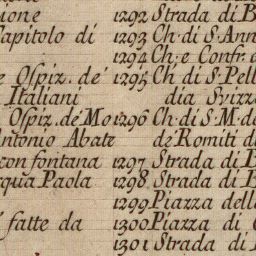 ione
1292 Strada di B
Capitolo di
1293 Ch. di S. Ann
1294 Ch. e Confr.
e Ospiz. de'
1295 Ch. di S. Pell
Italiani
dia Svizz
Ospiz. de Mo
1296 Ch. di S. M. de
Antonio Abate
de Romiti d
con fontana
1297 Strada di B
cqua Paola
1298 Strada di B
1299 Piazza dell
i fatte da
1300 Piazza di
1301 Strada di